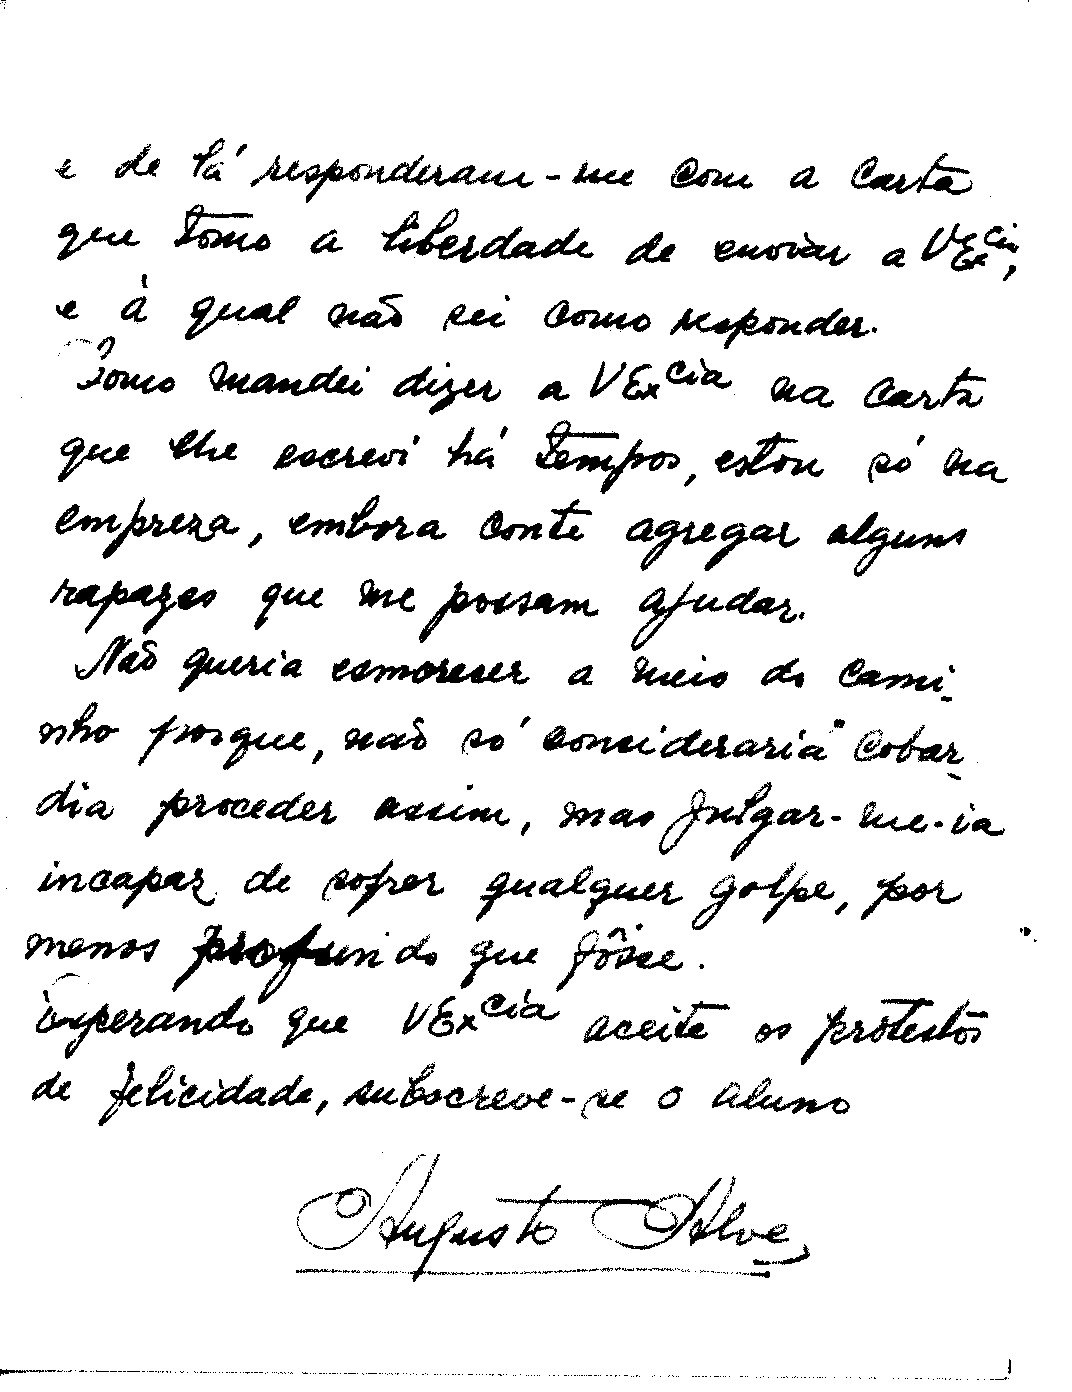 e de lá responderam-me com a carta
que tomo a liberdade de enviar a VExcia,
e à qual não sei como responder.
Como mandei dizer a VExcia na carta
que lhe escrevi há tempos, estou só na
empreza, embora conte agregar alguns
rapazes que me possam ajudar.
Não queria esmorecer a meio do cami-
nho porque, não só consideraria cobar-
dia proceder assim, mas julgar-me-ia
incapaz de sofrer qualquer golpe, por
menos profundo que fôsse.
Esperando que VExcia aceite os protestos
de felicidade, subscreve-se o aluno
Augusto Alves